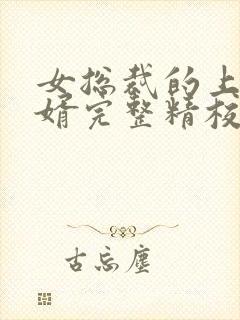 女总裁的上
婿完整精校
古忘尘